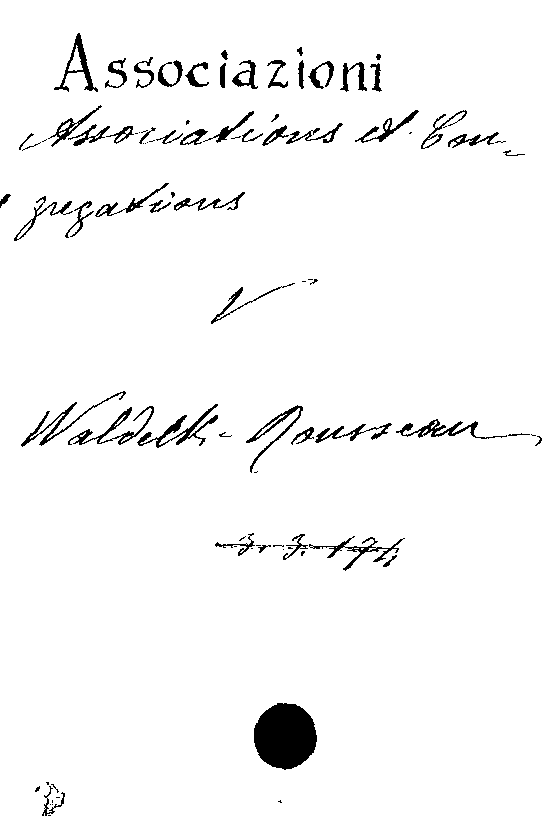 Associazioni
Associations et Con-
gregations
V
Waldeck-Rousseau
3. 3. 174